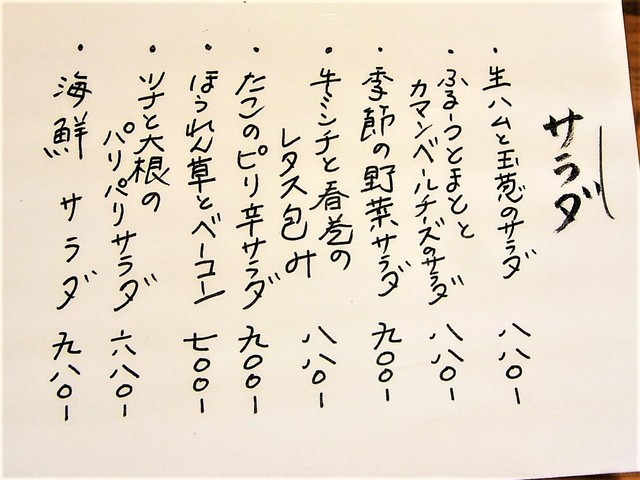 サラダ
・生ハムと玉葱のサラダ 八八〇ー
・ふるーつとまとと
カマンベールチーズのサラダ 八八〇ー
・季節の野菜サラダ 九〇〇ー
・牛ミンチと春巻の
レタス包み 八八〇ー
・たこのピリ辛サラダ 九〇〇ー
・ほうれん草とベーコン 七〇〇ー
・ツナと大根の
パリパリサラダ 六八〇ー
・海鮮 サラダ 九八〇ー